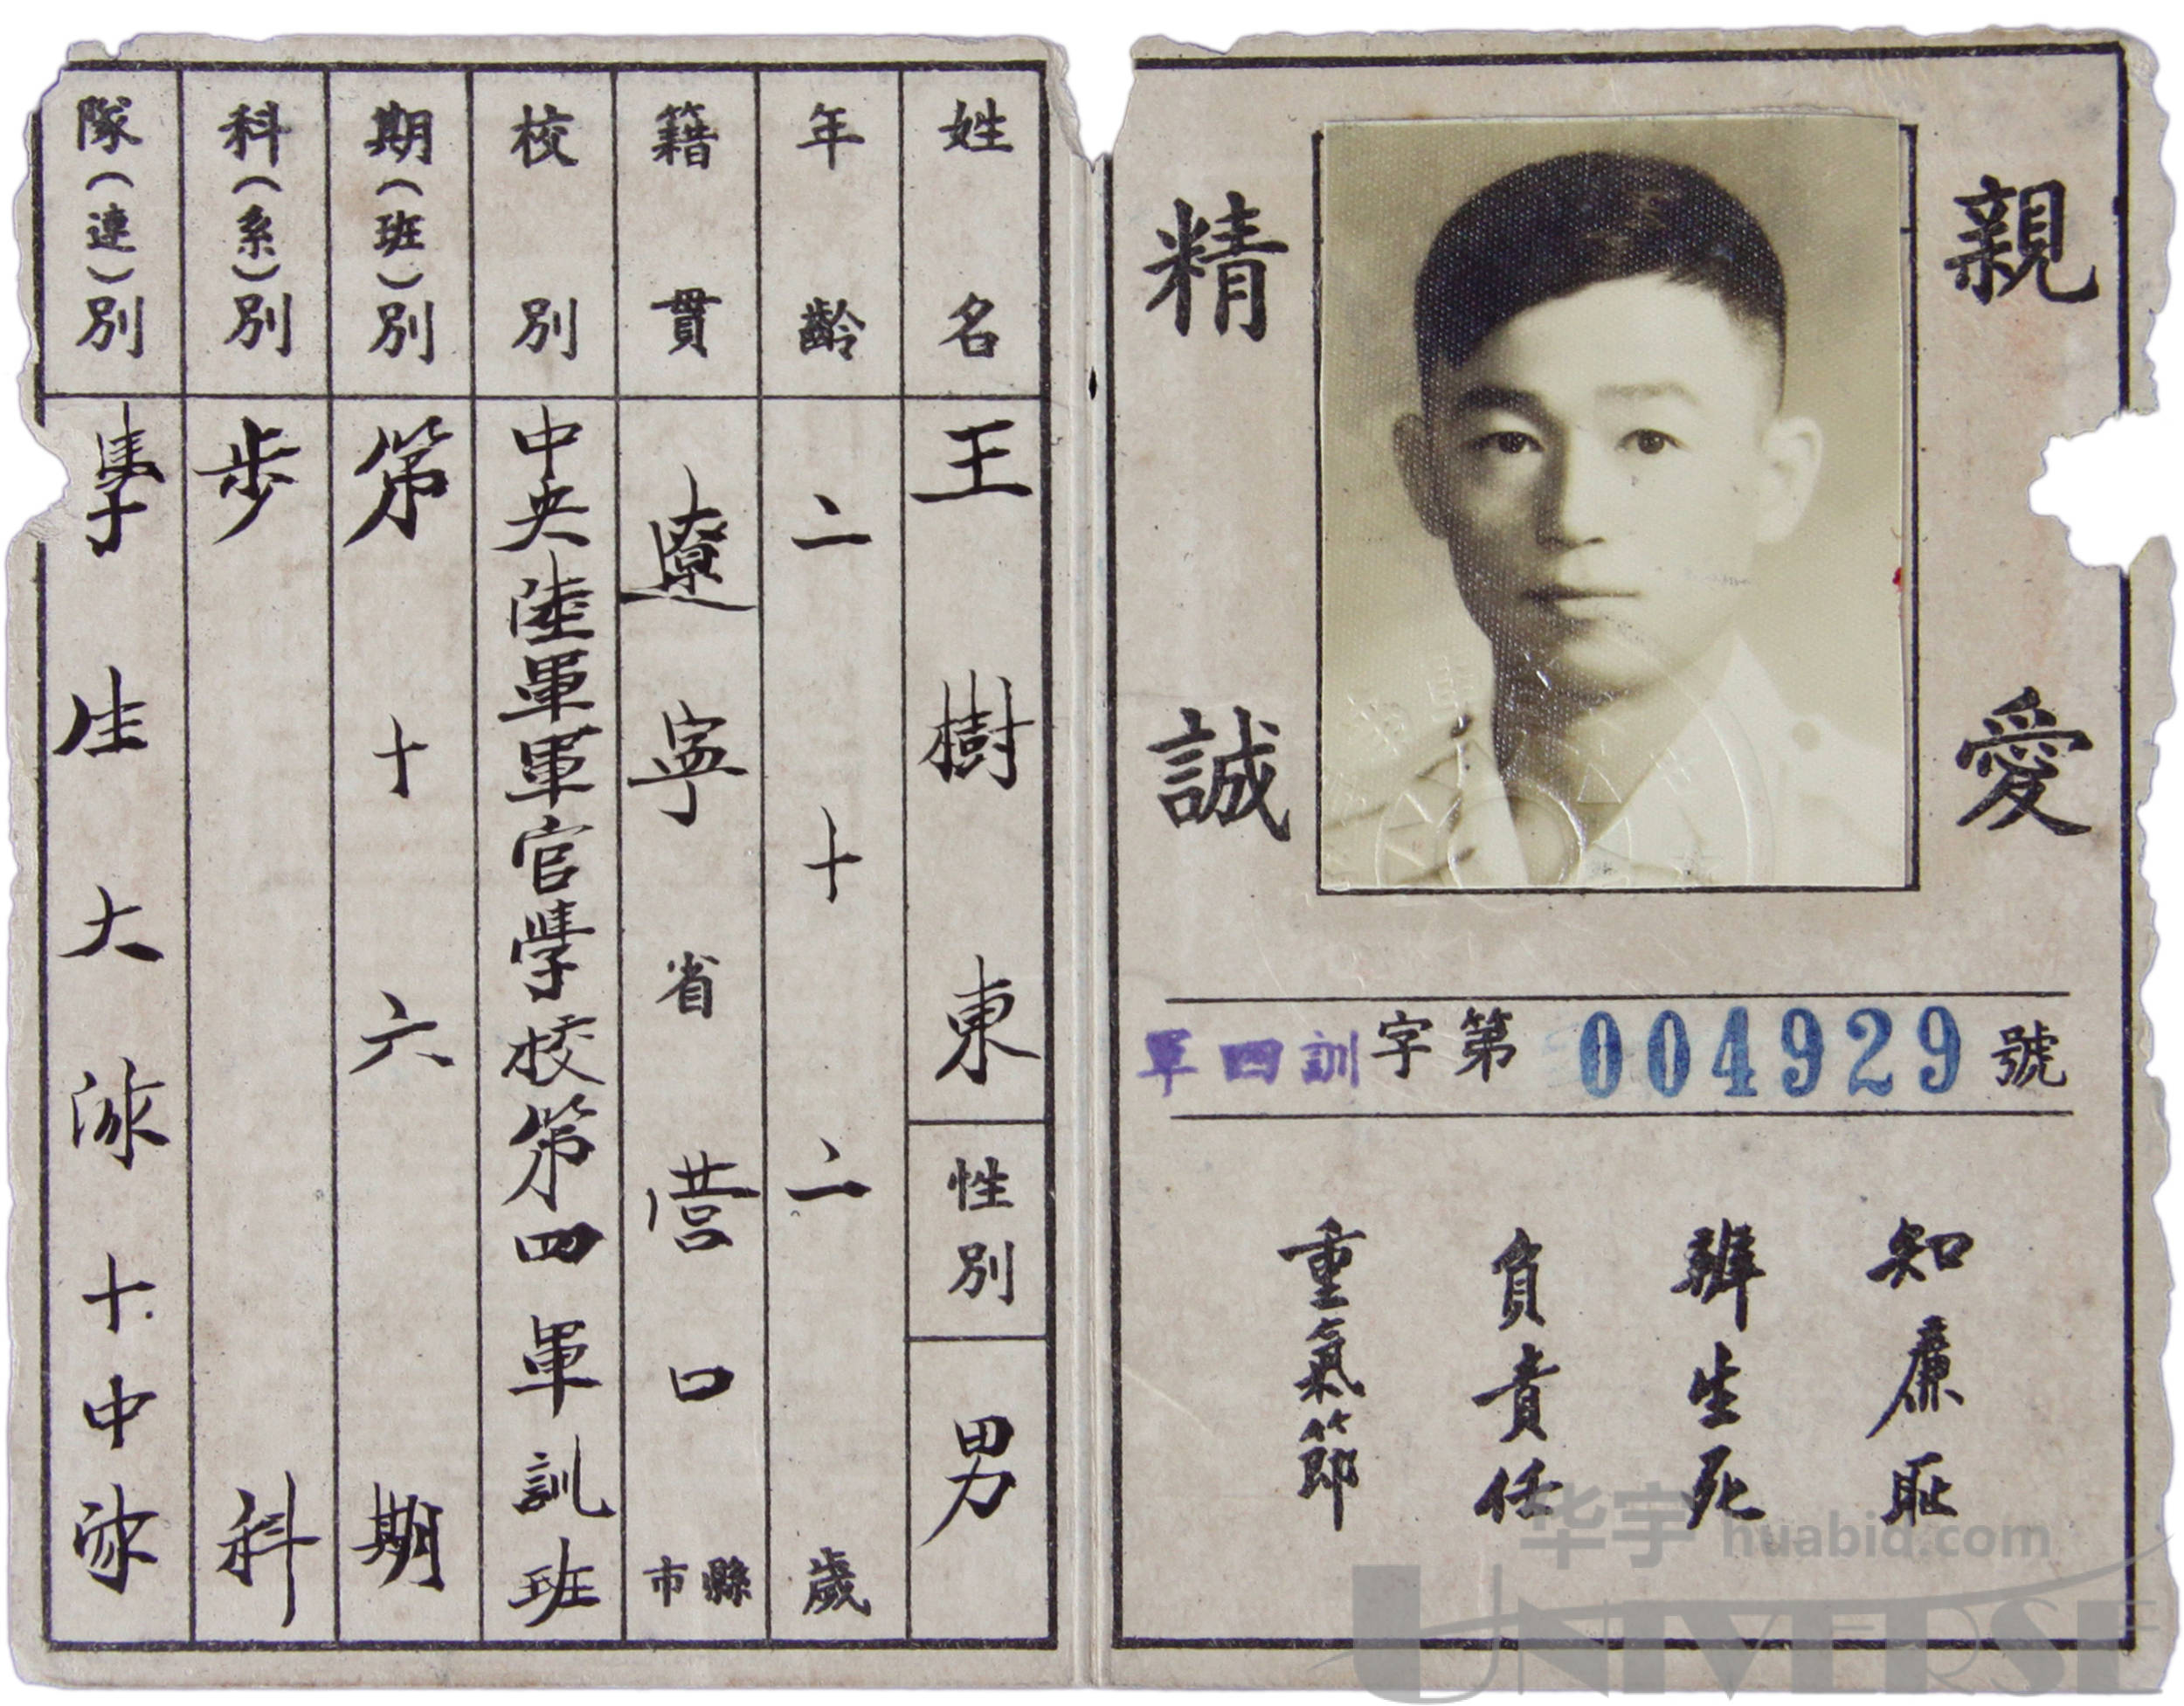 親愛
精誠
軍四訓字第004929號
知廉恥
辨生死
負責任
重氣節
姓名 王樹東 性別 男
年齡 二十二歲
籍貫 遼寧省營口縣市
校別 中央陸軍軍官學校第四軍訓班
期(班)別 第十六期
科(系)別 步科
隊(連)別 學生大隊十中隊
华宇 huabid.com
UNIVERSE